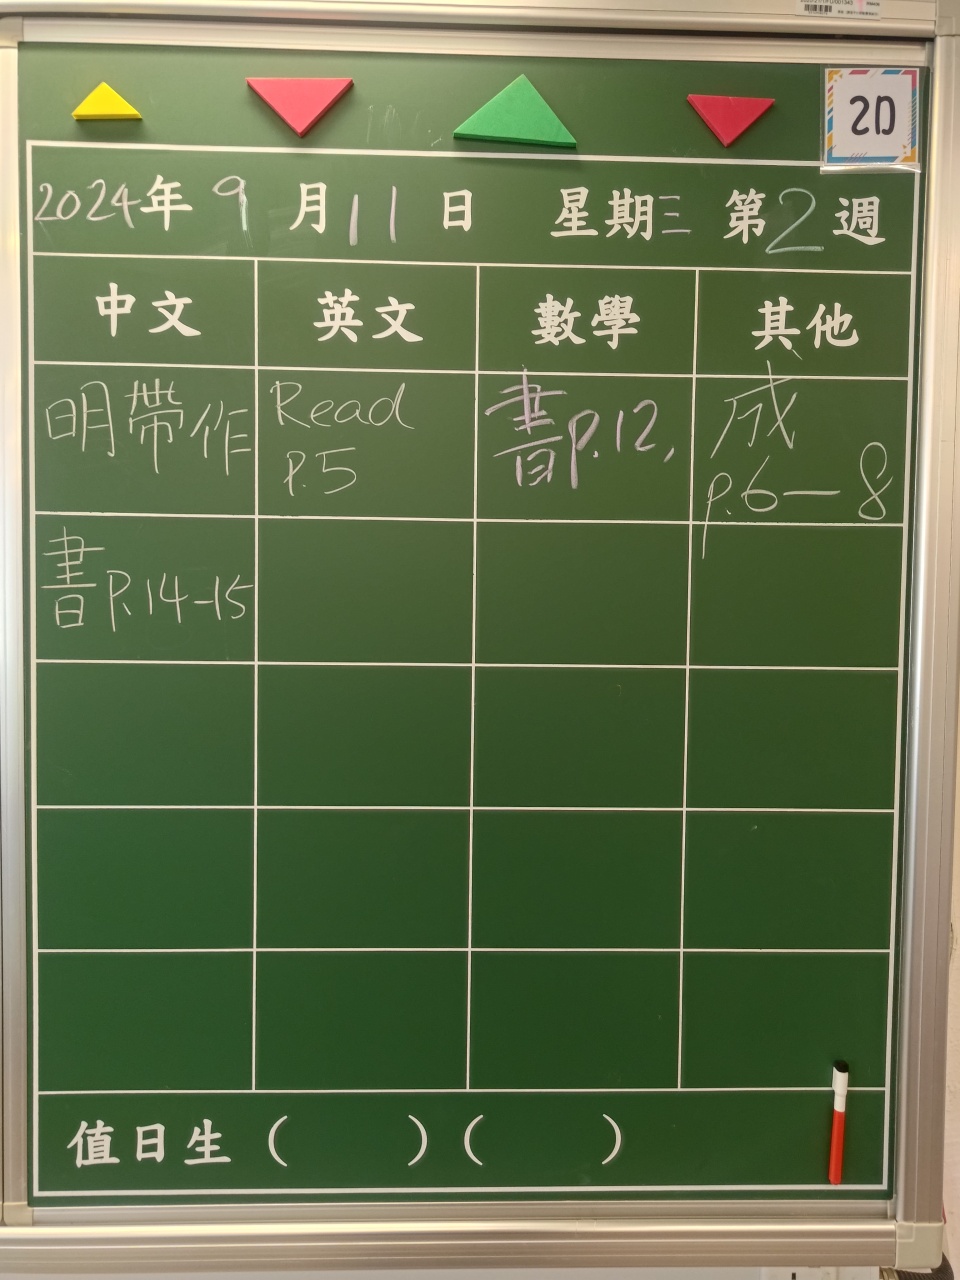 2D
2024年9月11日 星期三 第2週
中文 英文 數學 其他
明帶作 Read 書p.12, 成
P.5 p.6—8
書P.14-15
值日生 ( ) ( )